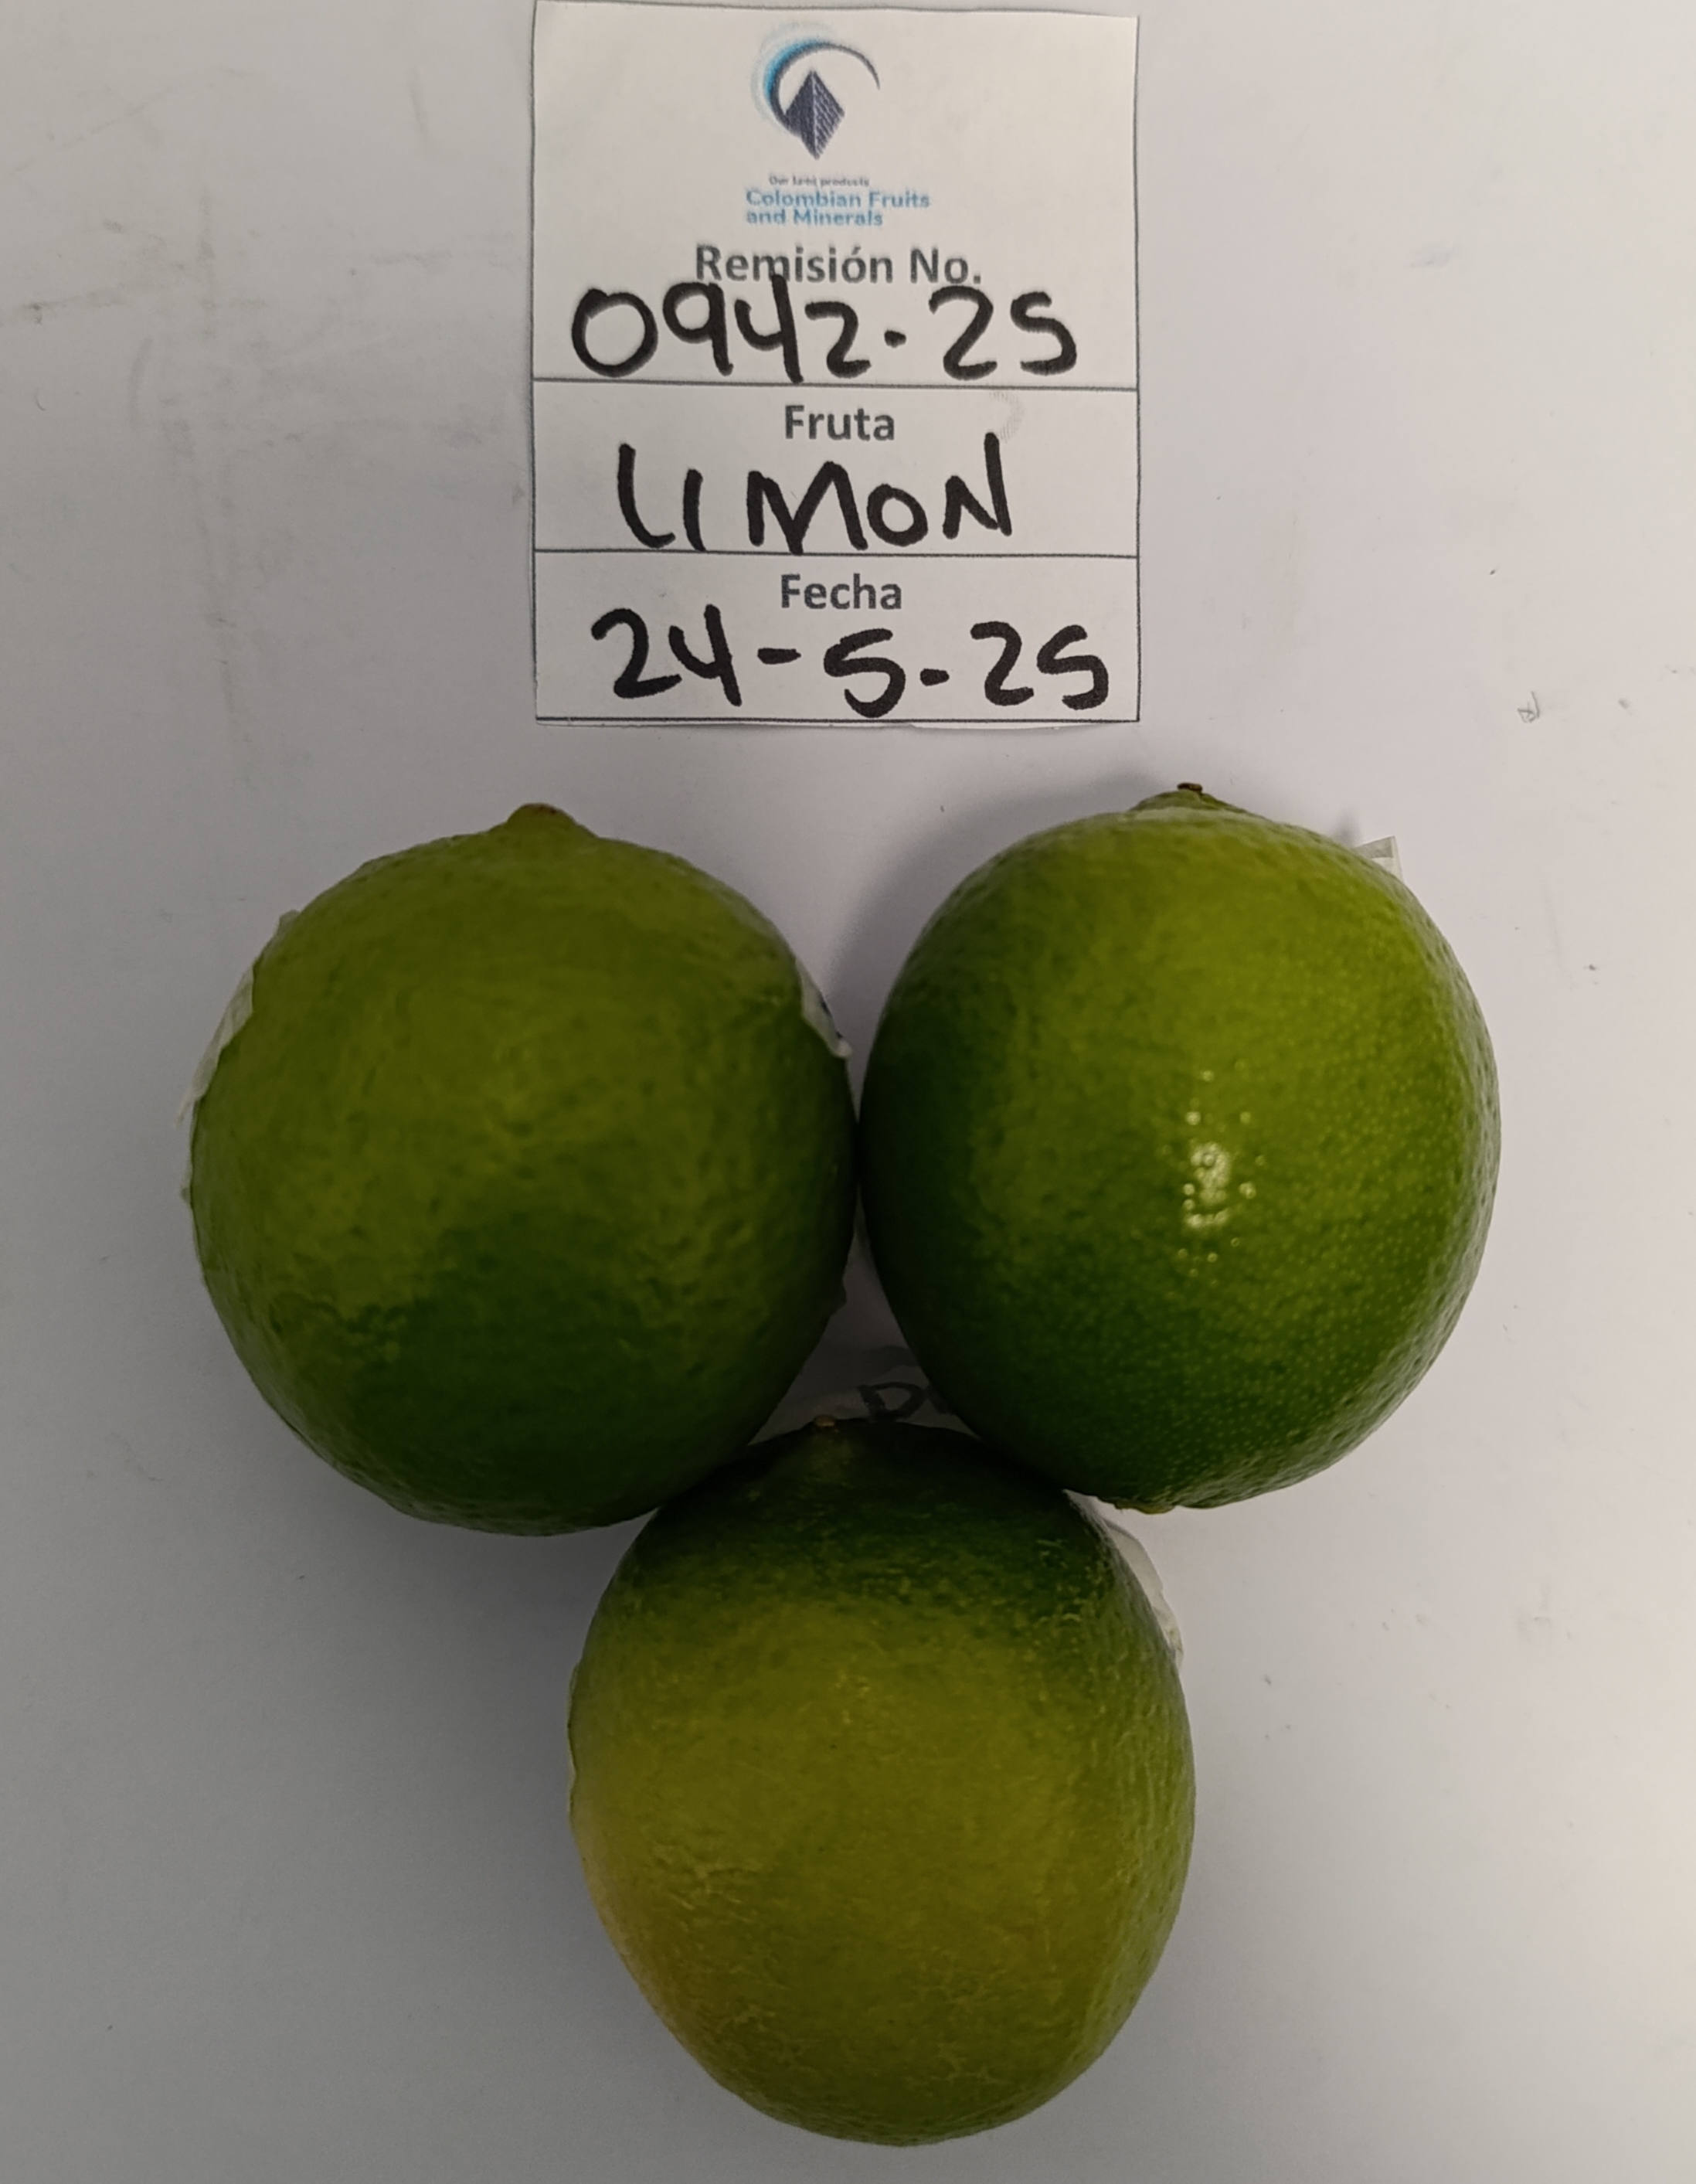 Our land products
Colombian Fruits
and Minerals
Remisión No.
0942-25
Fruta
LIMON
Fecha
24-5-25